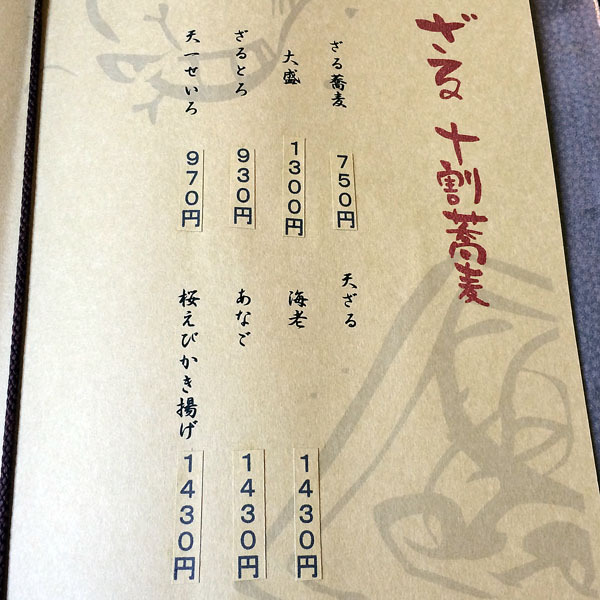 ざる 十割蕎麦
ざる蕎麦 750円
大盛 1300円
ざるとろ 930円
天一せいろ 970円
天ざる
海老 1430円
あなご 1430円
桜えびかき揚げ 1430円